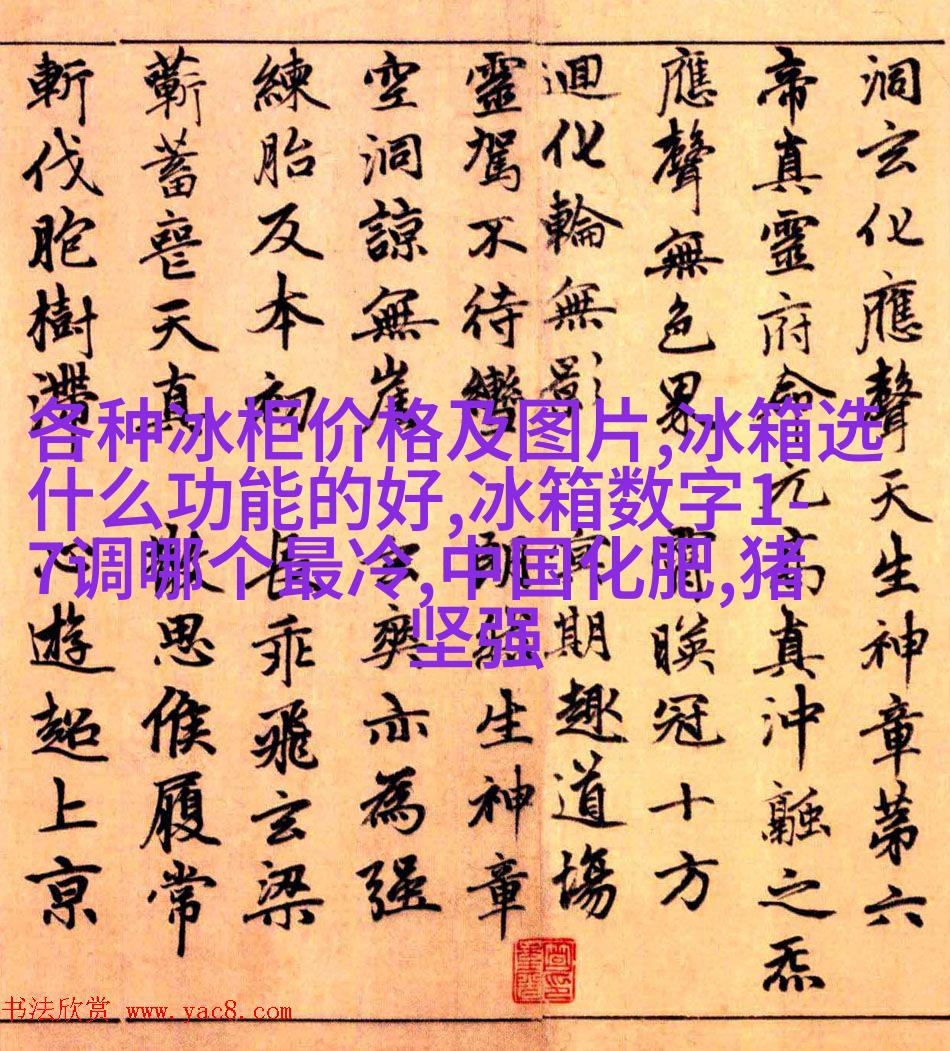 洞玄化應聲天生神章第六
帝真靈府命元高真沖融之炁
應聲無色界霄映冠十方
迴化輪無影冥期趣道場
靈駕不待轡朗生神章
空洞諒無崖玄爽亦為強
練胎反本初長乖飛玄梁
蘄蓄喪天真散思候履常
斬伐胞樹滯心遊超上京
各种冰柜价格及图片,冰箱选
什么功能的好,冰箱数字1-
7调哪个最冷,中国化肥,猪
坚强
书法欣赏 www.yac8.com